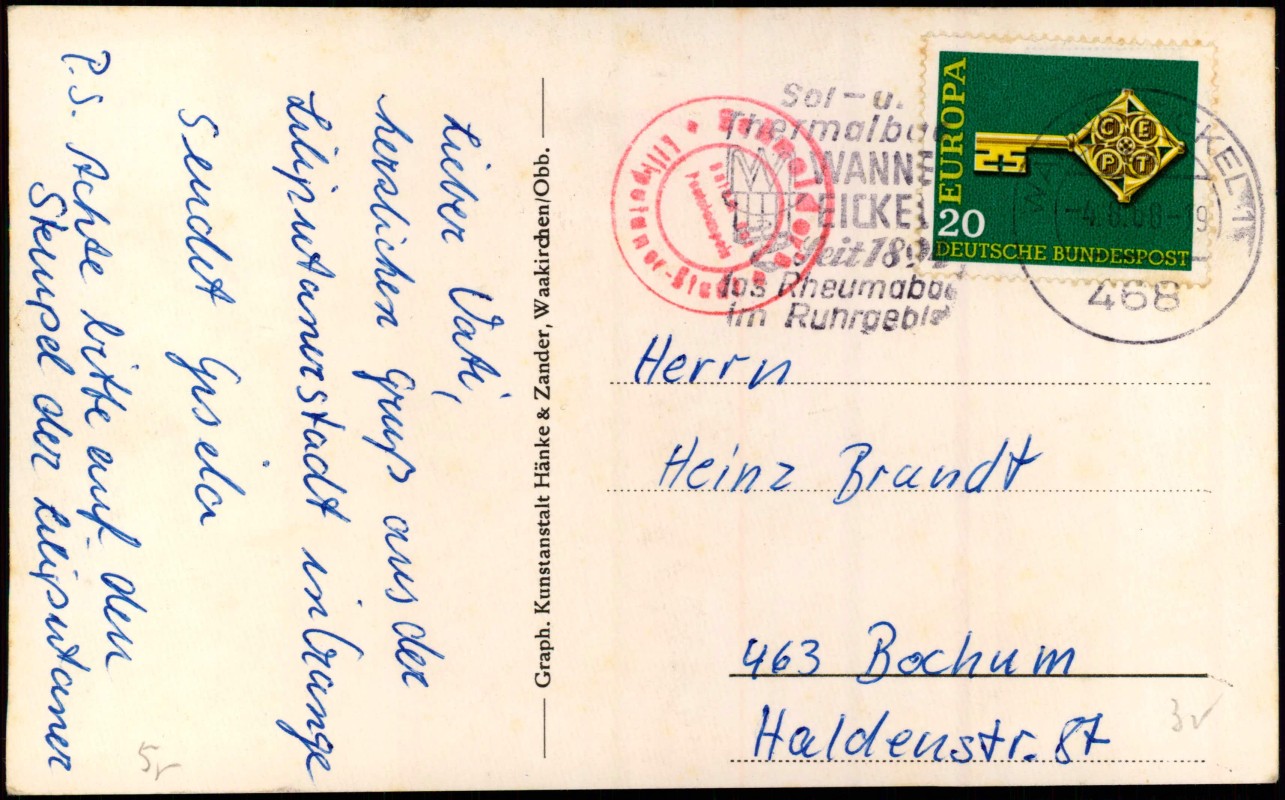 Lieber Vati,
herzlichen Gruß aus der
Liliputanerstadt in Crange
Sendet Gisela
P.S. Achte bitte auf den
Stempel der Liliputaner
Graph. Kunstanstalt Hänke & Zander, Waakirchen/Obb.
Liliputaner-Stadt
Sol-u.
Thermalbad
WANNE
EICKEL
seit 189
das Rheumabad
im Ruhrgebiet
EUROPA
CEPT
20
DEUTSCHE BUNDESPOST
WANNE-EICKEL 1
-4.8.68-19
468
Herrn
Heinz Brandt
463 Bochum
Haldenstr. 87